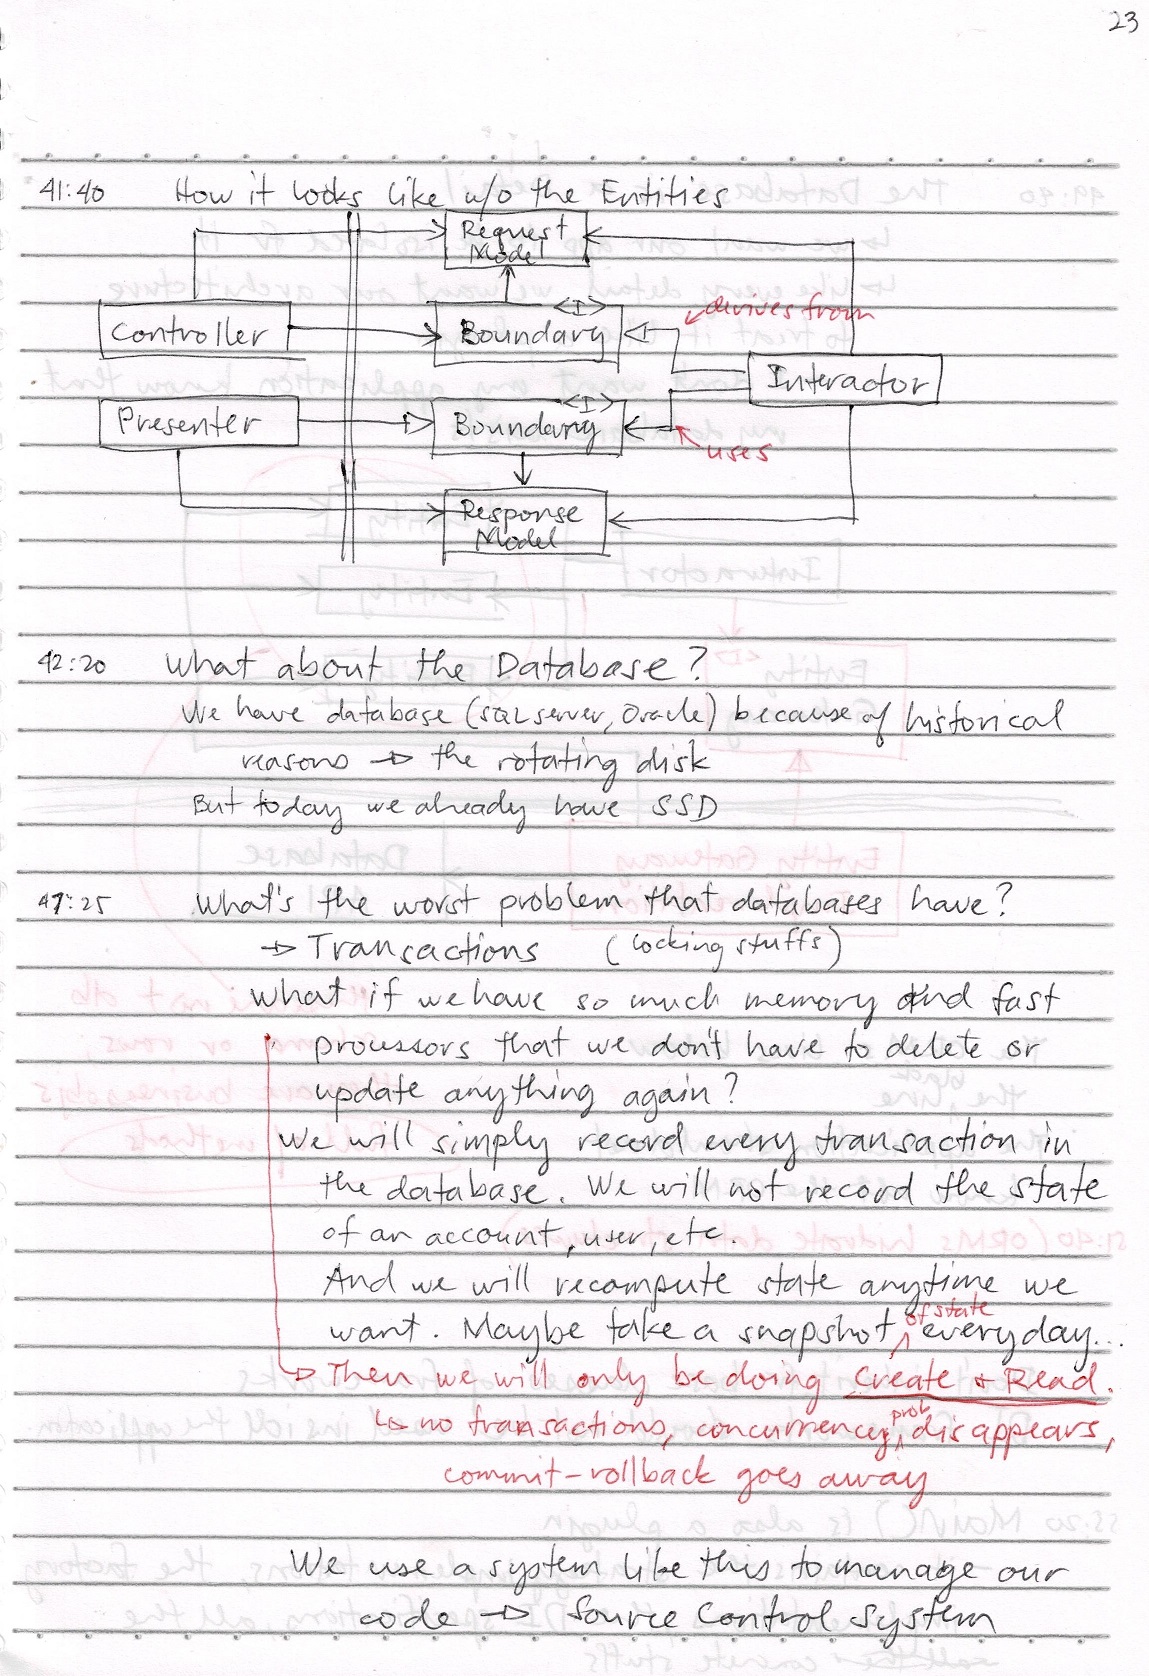 23
41:40 How it looks like w/o the Entities
Request
Model
<I>
derives from
Controller
Boundary
Interactor
<I>
Presenter
Boundary
uses
Response
Model
42:20 What about the Database?
We have database (SQL server, Oracle) because of historical
reasons → the rotating disk
But today we already have SSD
47:25 What's the worst problem that databases have?
→ Transactions (locking stuffs)
What if we have so much memory and fast
processors that we don't have to delete or
update anything again?
We will simply record every transaction in
the database. We will not record the state
of an account, user, etc.
And we will recompute state anytime we
want. Maybe take a snapshot of state everyday...
→ Then we will only be doing Create & Read.
↳ no transactions, concurrency prob disappears,
commit-rollback goes away
We use a system like this to manage our
code → Source Control System